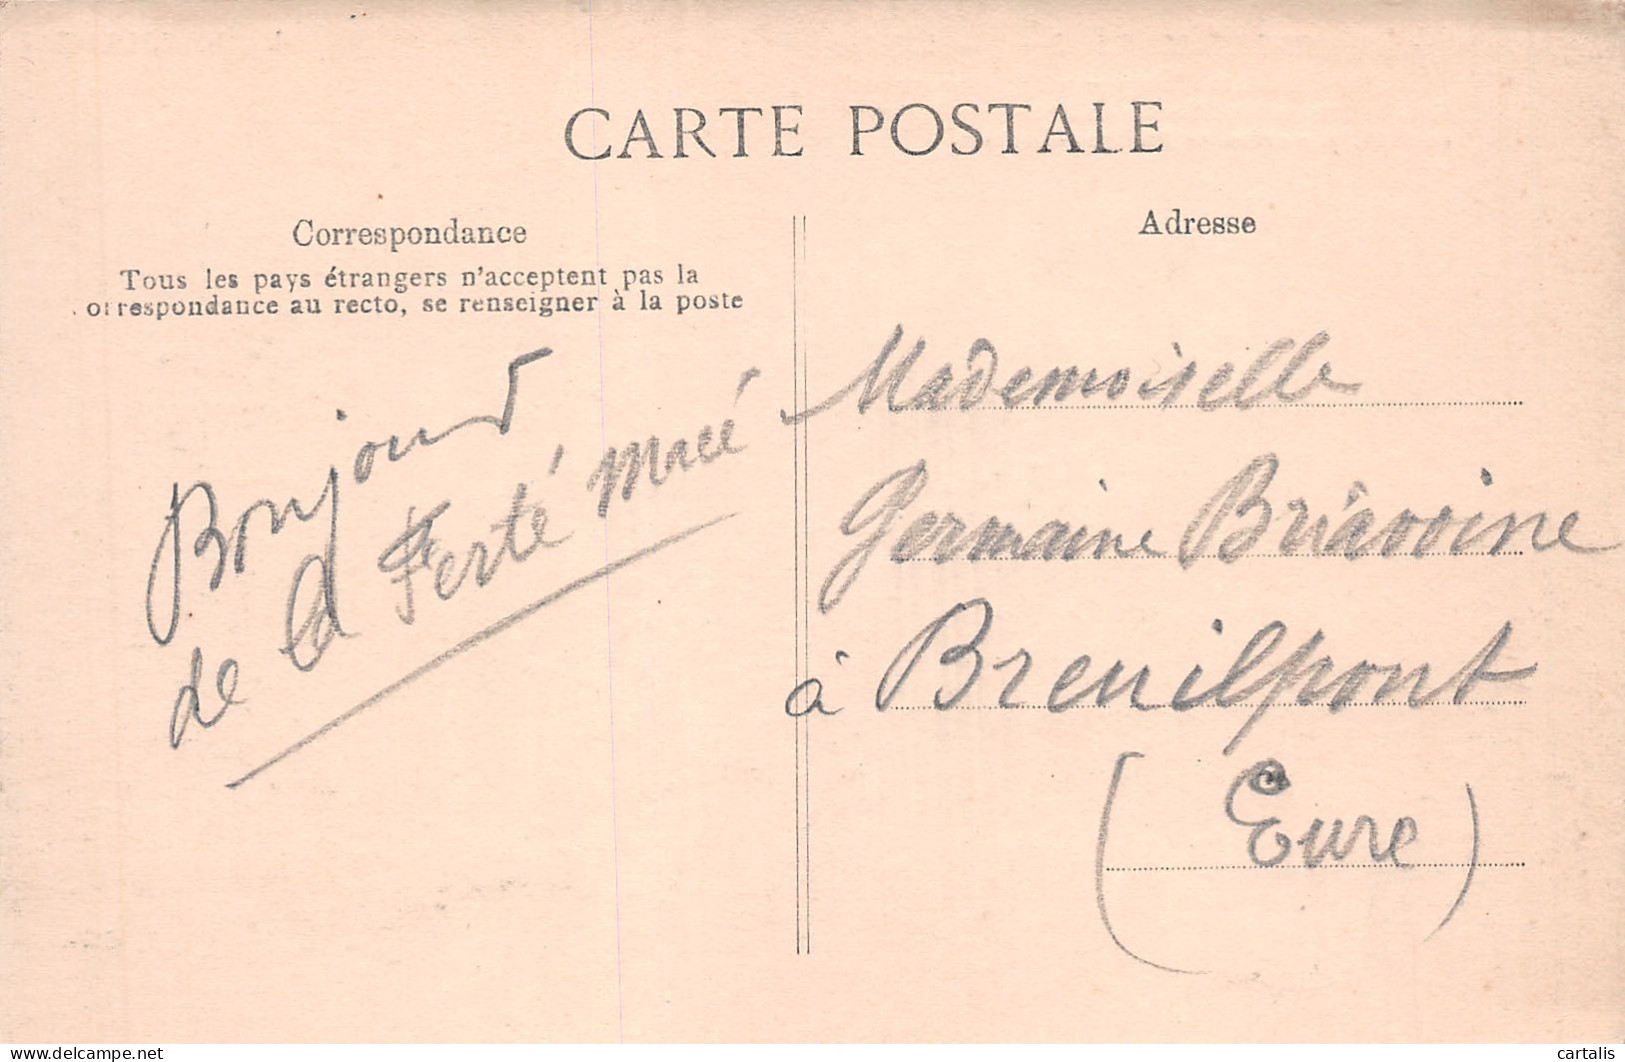 CARTE POSTALE
Correspondance
Tous les pays étrangers n'acceptent pas la
orrespondance au recto, se renseigner à la poste
Bonjour
de la Ferté Macé
Adresse
Mademoiselle
Germaine Briavoine
à Breuilpont
(Eure)
delcampe.net
cartalis